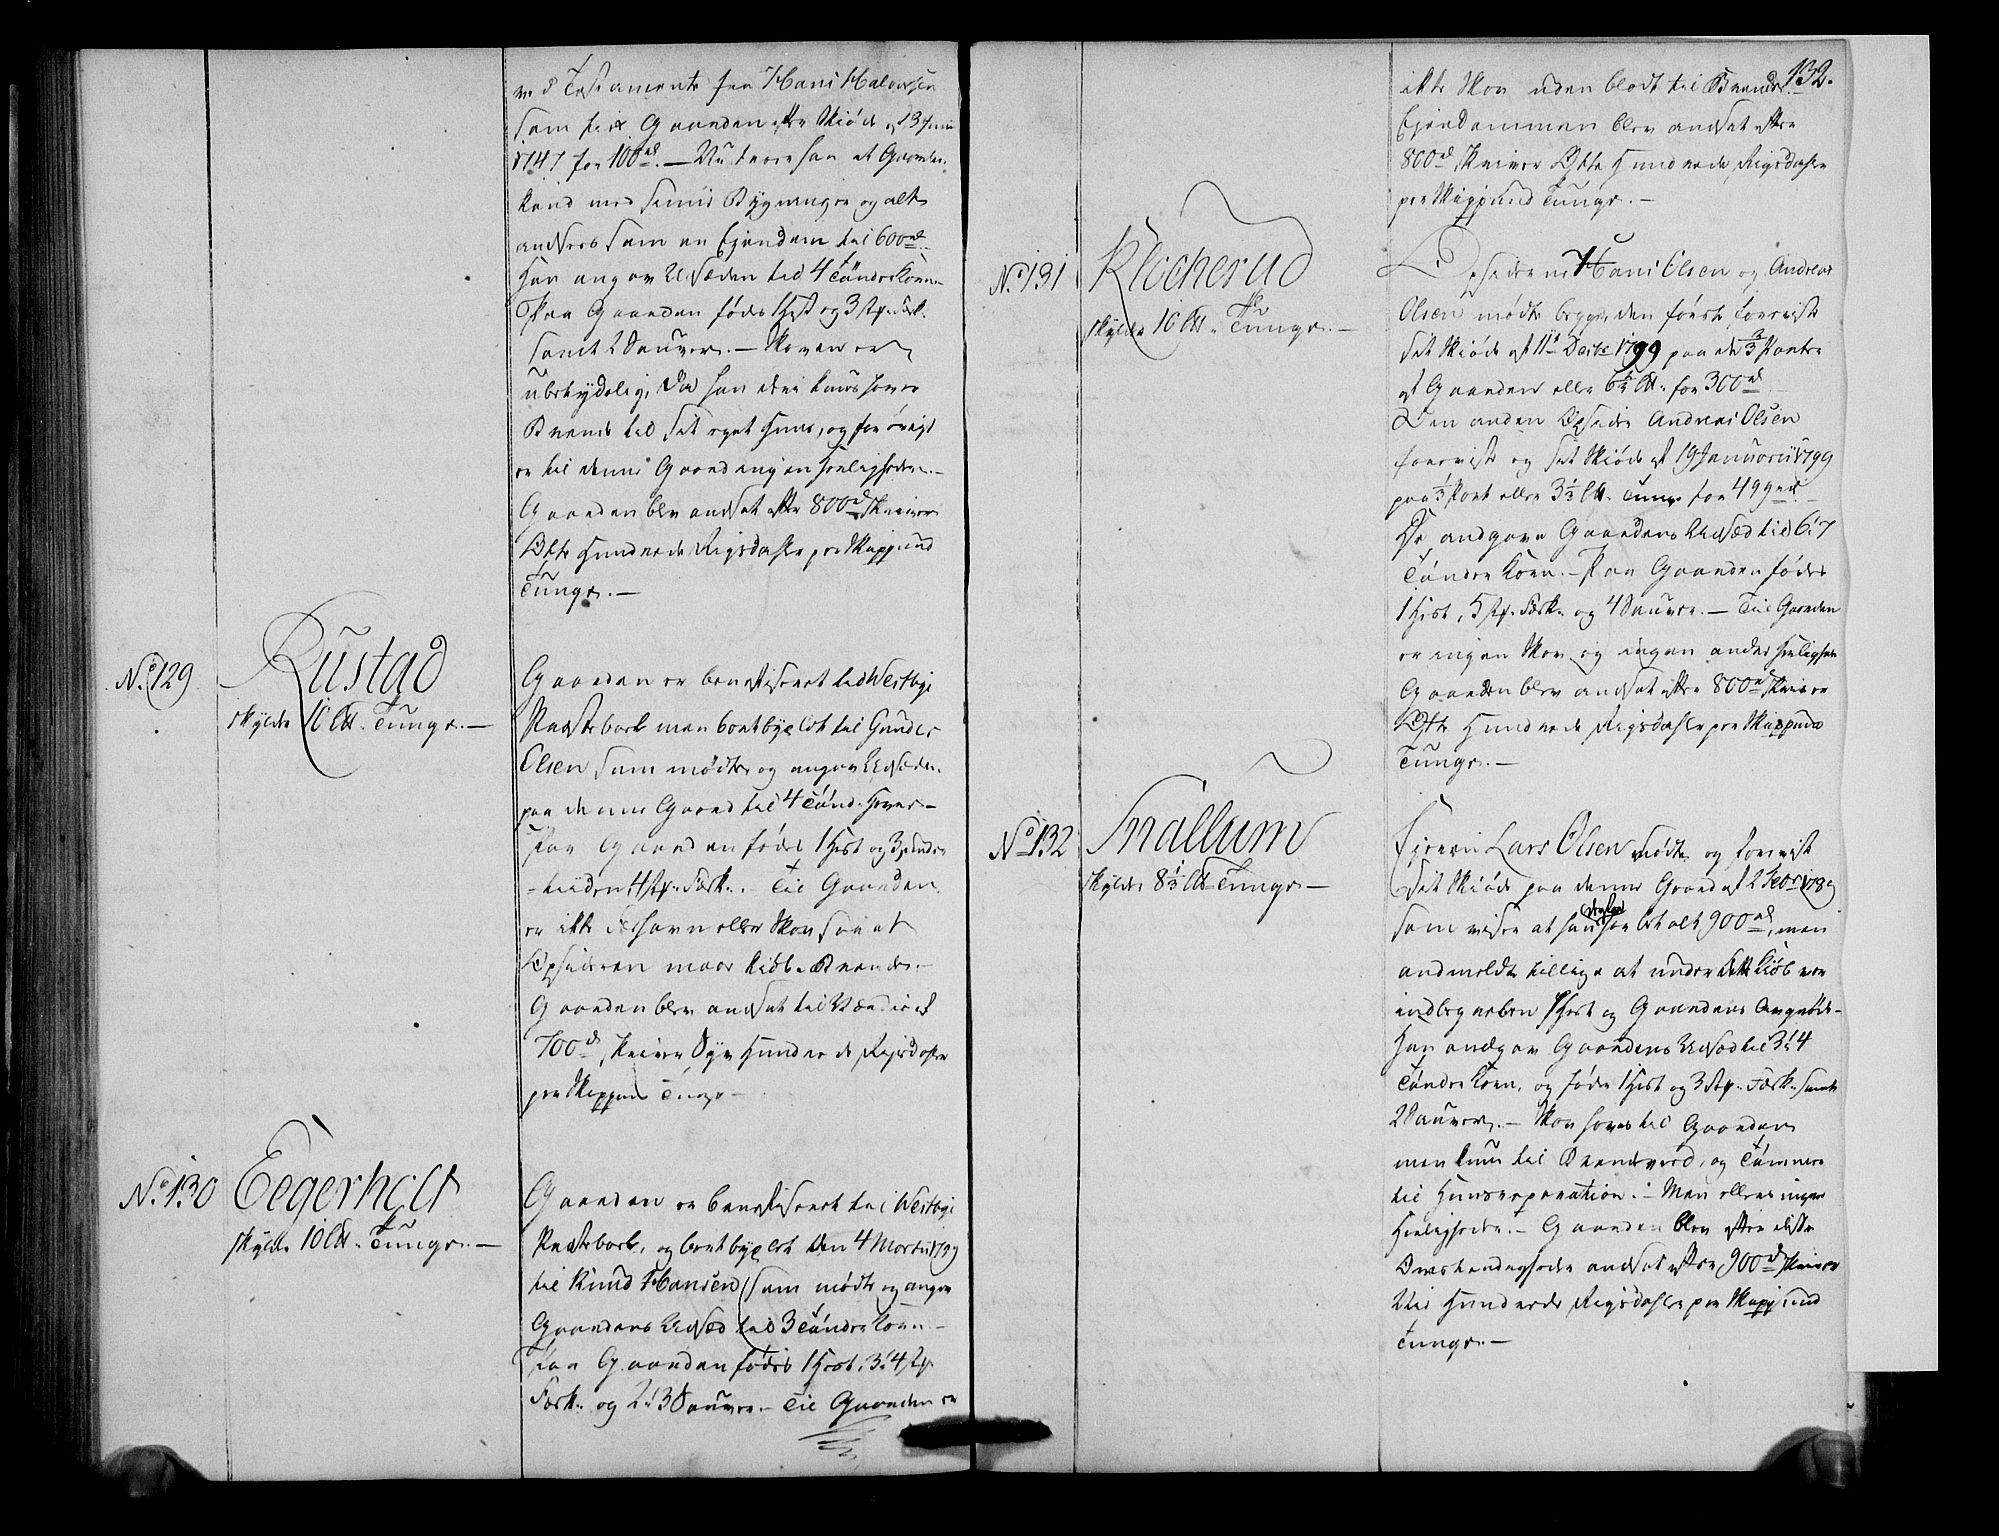 ved Testamente fra Hans Halvorsen
som fik Gaarden efter Skiøde af 3 Juni
1747 for 100 rd. — Nu troer han at Gaarden
kand med sine Bygninger og alt
andsees som en Ejendom til 600 rd.
Han angav Udsæden til 4 Tønder Korn —
Paa Gaarden fødes 1 Hest og 3 Stk. Fæ
samt 2 Sauver. — Skoven er
ubetydelig, da han ei kuns haver
Brende til sit eget Huus, og for øvrigt
er til denne Gaard ingen Herligheder. —
Gaarden blev andsat efter 800 rd skriver
Otte Hundrede Rigsdahler per Skippund
Tunge. —
No. 129
Rustad
skylder 10 Lb. Tunge. —
Gaarden er beneficeret til Westbye
Præstebord men bortbyxlet til Gunder
Olsen som mødte og angav Udsæden
paa denne Gaard til 4 Tønd. Havre —
Paa Gaarden fødes 1 Hest og 3 undertiiden 4 Stk. Fæ. Til Gaarden
er ikke Fæhavn eller Skov saa at
Opsideren maae kiøbe Brende. —
Gaarden blev andsat til Værdie af
700 rd, skriver Syv Hundrede Rigsdahler
per Skippund Tunge —
No. 130
Eegerholt
skylder 10 Lb. Tunge. —
Gaarden er beneficeret til Westbye
Præstebord, og bortbyxlet den 4 Martii 1799
til Knud Hansen som mødte og angav
Gaardens Udsæd til 3 Tønder Korn —
Paa Gaarden fødes 1 Hest, 3 á 4 Stk
Fæ og 2 á 3 Sauver. — Til Gaarden er
132.
ikke Skov uden blodt til Brende.
Ejendommen blev andsat efter
800 rd skriver Otte Hundrede Rigsdahler
per Skippund Tunge. —
No. 131
Klocherud
skylder 10 Lb. Tunge. —
Opsiderne Hans Olsen og Andreas
Olsen mødte begge, den første foreviste
sit Skiøde af 11te Decbr 1799 paa de 2/3 Parter
af Gaarden eller 6 1/2 Lb. for 300 rd
Den anden Opsider Andreas Olsen
foreviste og sit Skiøde af 19 Januarii 1799
paa 1/3 Part eller 3 1/3 Lb. Tunge for 499 rd.
De andgave Gaardens Udsæd til 6 á 7
Tønder Korn. — Paa Gaarden fødes
1 Hest, 5 Stk. Fæ og 4 Sauver. — Til Gaarden
er ingen Skov og ingen anden Herlighed
Gaarden blev andsat efter 800 rd skriver
Otte Hundrede Rigsdahler per Skippund
Tunge. —
No. 132
Smallum
skylder 8 1/3 Lb Tunge —
Ejeren Lars Olsen mødte og foreviste
sit Skiøde paa denne Gaard af 2 Febr 1789
som viser at han har betalt 900 rd, men
andmeldte tillige at under dette Kiøb var
indbegreben 1 Hest og Gaardens
Han andgav Gaardens Udsæd til 3 á 4
Tønder Korn, og føder 1 Hest og 3 Stk. Fæ samt
2 Sauver. — Skov haves til Gaarden
men kun til Brendeved, og Tømmer
til Huusreparation. — Men ellers ingen
Herligheder. — Gaarden blev efter disse
Omstændigheder andsat efter 900 rd skriver
Nie Hundrede Rigsdahler per Skippund
Tunge. —